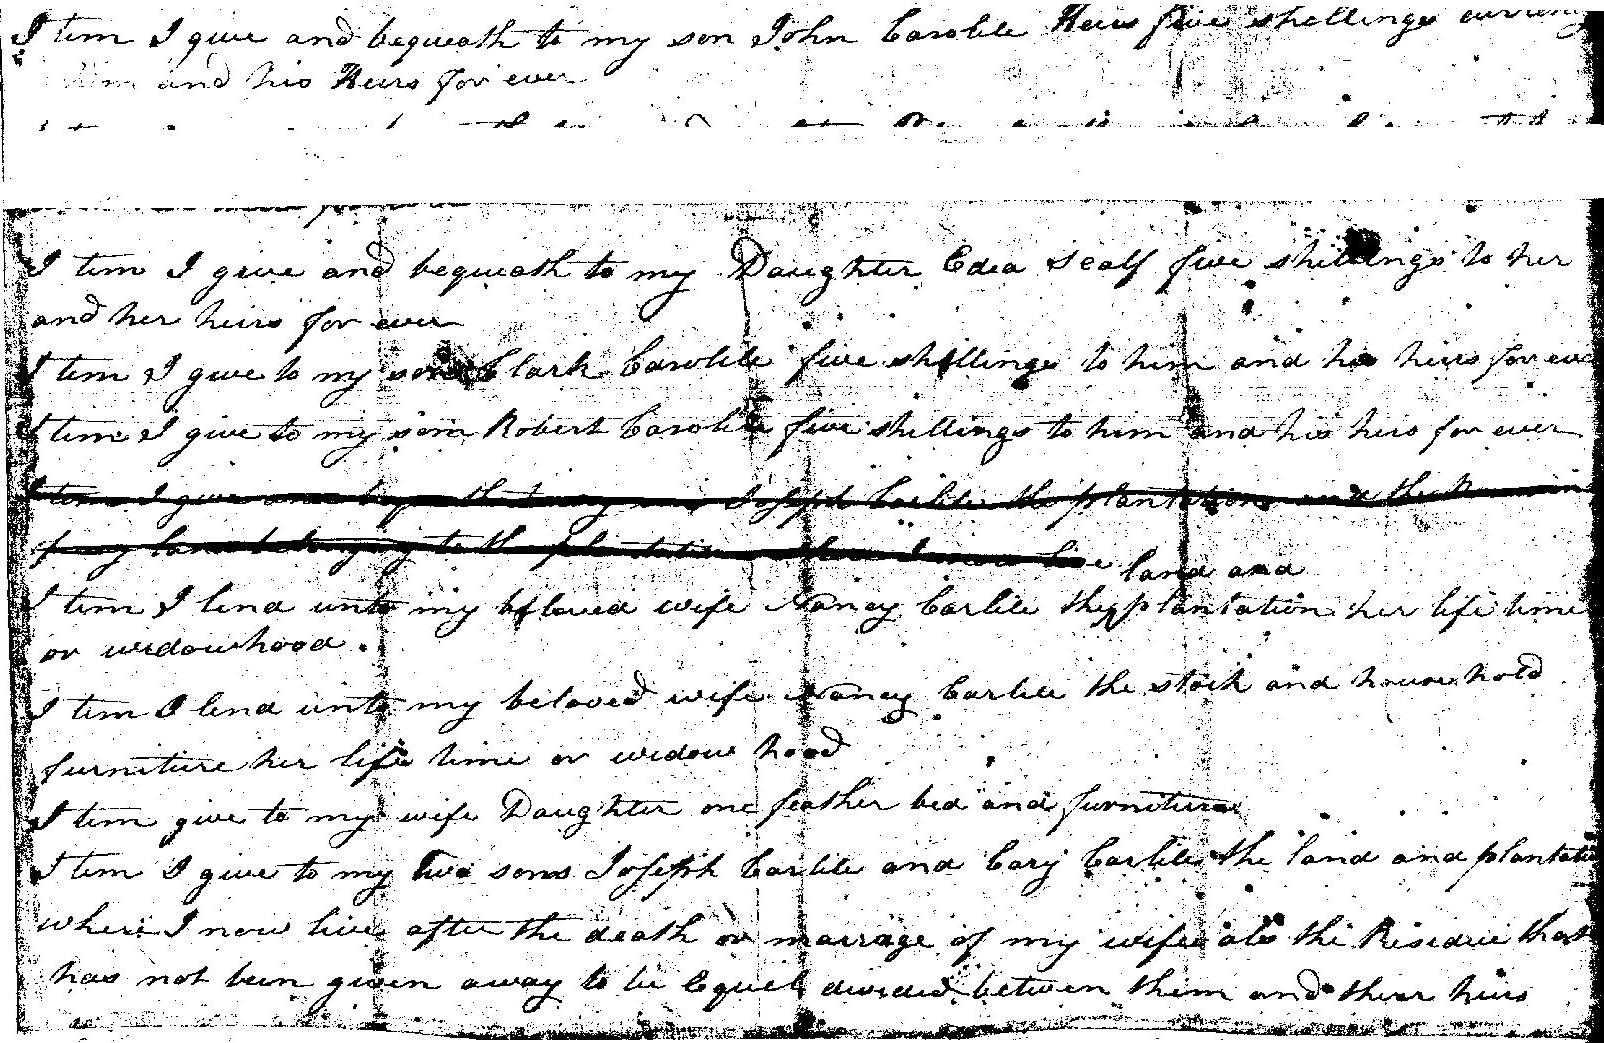 I tim I give and bequeath to my son John Carlile Heirs five shillings curren
him and his Heirs for ever
I tim I give and bequeath to my Daughter Edea Scalf five shillings to her
and her heirs for ever
I tim I give to my son Clark Carlile five shillings to him and his heirs for eve
I tim I give to my son Robert Carlile five shillings to him and his heirs for ever
I tim I give and bequeath to my son Joseph Carlile the plantation and the
of my land belonging to the plantation where I now live
land and
I tim I lend unto my beloved wife Nancy Carlile the plantation her life time
or widowhood.
I tim I lend unto my beloved wife Nancy Carlile the stock and house hold
furniture her life time or widow hood
I tim give to my wife Daughter one feather bed and furniture
I tim I give to my two sons Joseph Carlile and Cary Carlile the land and plantati
where I now live after the death or marrage of my wife als the Residue that
has not been given away to be Equel divided between them and their heirs